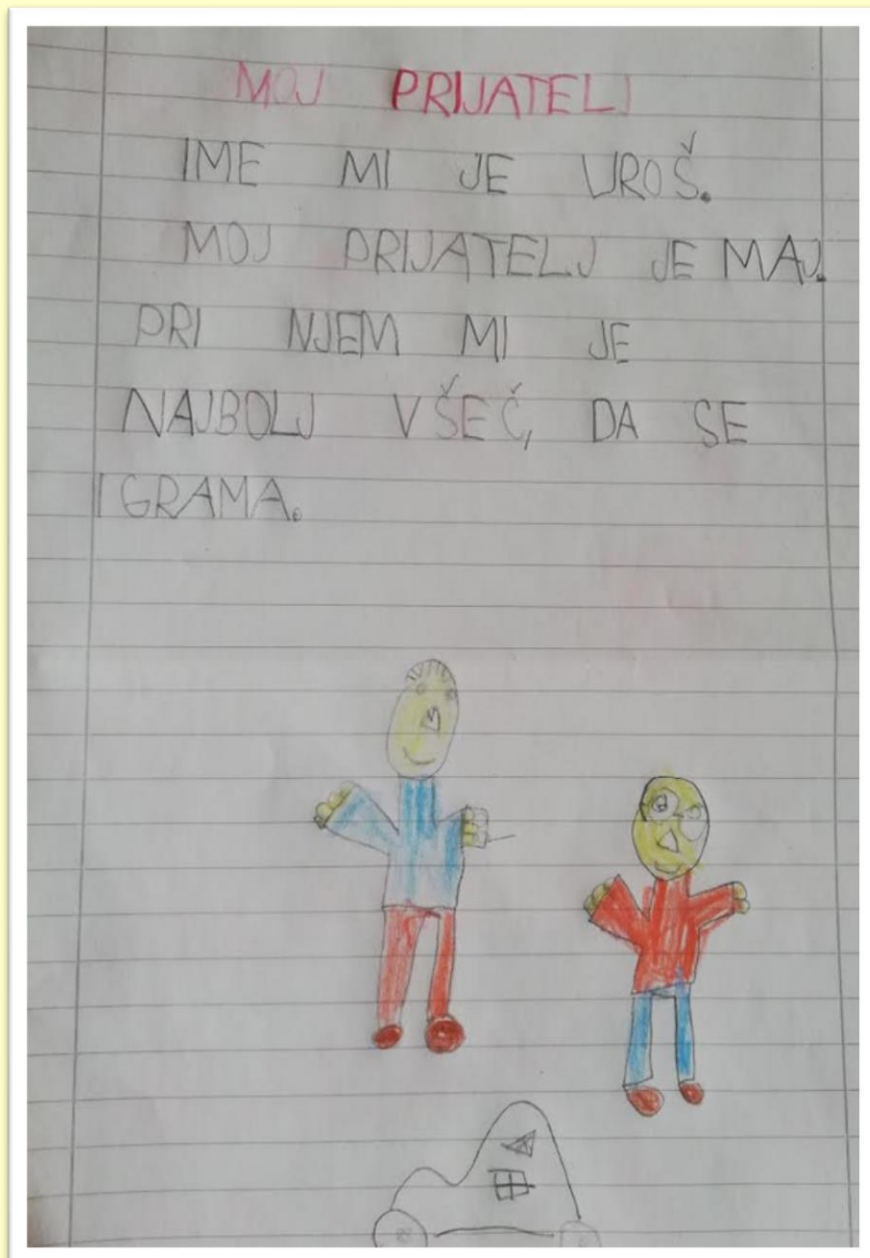 MOJ PRIJATELJ
IME MI JE UROŠ.
MOJ PRIJATELJ JE MAJ.
PRI NJEM MI JE
NAJBOLJ VŠEČ, DA SE
IGRAMA.